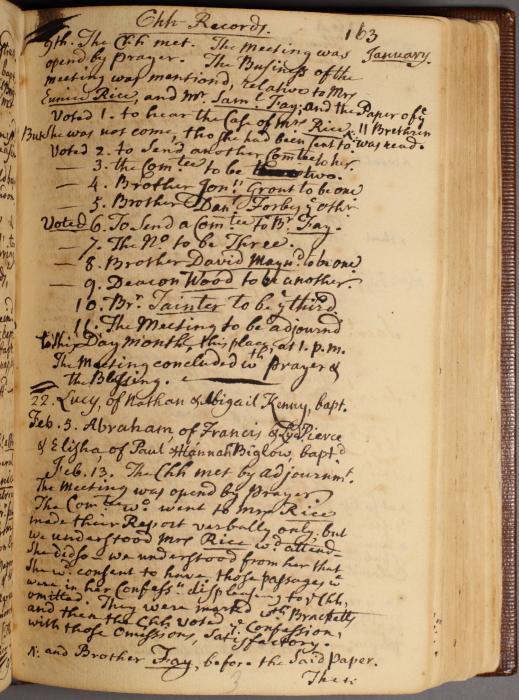 Chh Records. 163
9th. The Chh met. The Meeting was January.
opend by prayer. The Business of the
meeting was mentiond, relative to Mrs
Eunice Rice, and Mr. Saml. Fay; and the Paper of ye
Voted 1. to hear the Case of Mrs Rice. 11 Brethren
But she was not come, tho she had been sent to. was read.
Voted 2. to Send another Comtee to her.
— 3. the Comtee to be two.
— 4. Brother Jonn. Grout to be one
— 5. Brother Danl. Forbes ye othr.
Voted 6. To Send a Comtee to Br. Fay.
— 7. The No. to be Three.
— 8. Brother David Maynd. to be one
— 9. Deacon Wood to be another
10. Br. Tainter to be ye third
11. The Meeting to be adjournd
to this Day month, this place, at 1. p.m.
The Meeting concluded wth prayer &
the Blessing.
22. Lucy, of Nathan & Abigail Kenny, bapt.
Feb. 5. Abraham, of Francis & Lyd. Pierce
& Elisha, of Paul & Hannah Biglow, baptd.
Feb. 13. The Chh met by adjournmt.
The Meeting was opend by prayer.
The Comtee wo. went to Mrs Rice
made their Report verbally only; but
we understood Mrs Rice wd. attend—
She did so — we understood from her that
She wd. consent to have those passages wc
were in her Confessn. displeasing to ye Chh,
omitted. They were marked wth Bracketts
and then the Chh voted ye Confession,
with those Omissions, Satisfactory.
N: and Brother Fay, before the Said Paper.
3